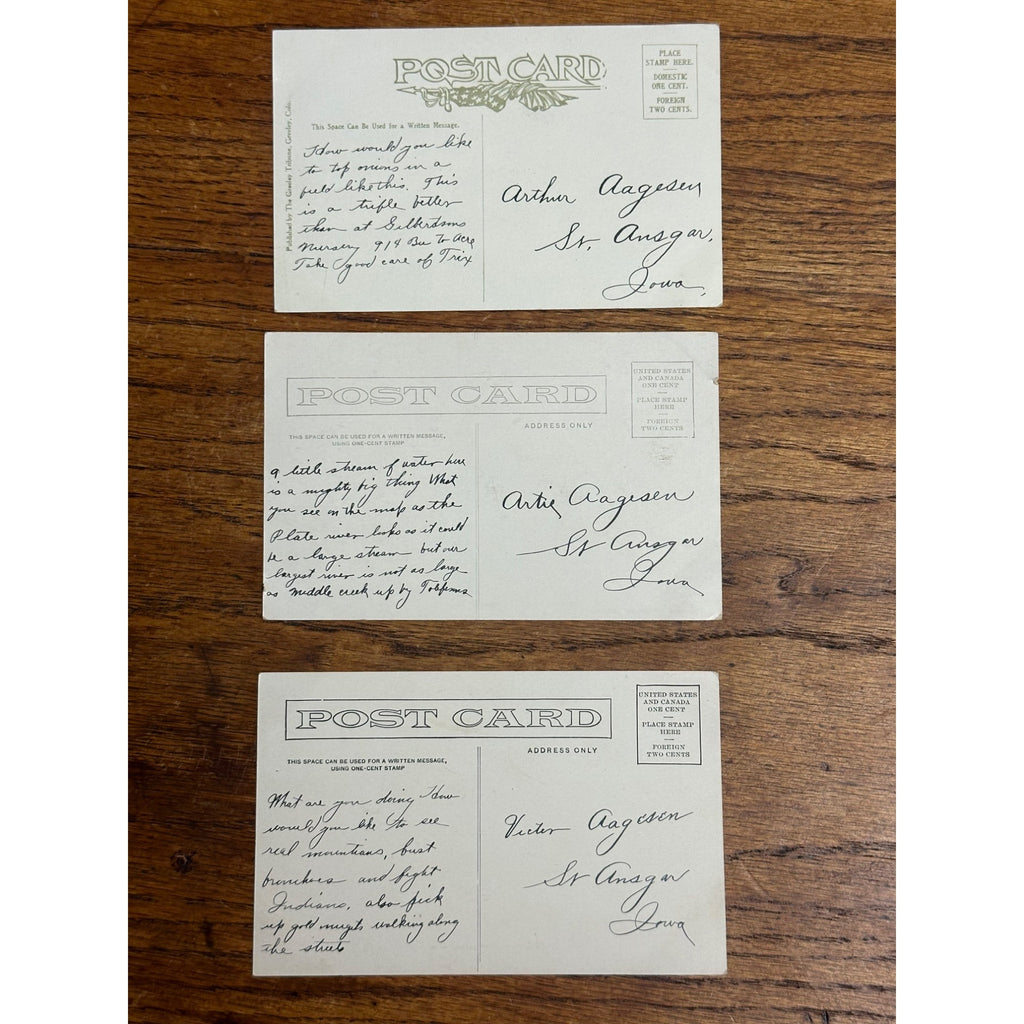 POST CARD
PLACE
STAMP HERE.
DOMESTIC
ONE CENT.
FOREIGN
TWO CENTS.
Published by The Greeley Tribune, Greeley, Colo.
This Space Can Be Used for a Written Message.
How would you like
to top onions in a
field like this. This
is a trifle better
than at Gilbertsons
Nursery 914 Bu to Acre
Take good care of Trix
Arthur Aagesen
St. Ansgar,
Iowa,
POST CARD
UNITED STATES
AND CANADA
ONE CENT
PLACE STAMP
HERE
FOREIGN
TWO CENTS
THIS SPACE CAN BE USED FOR A WRITTEN MESSAGE,
USING ONE-CENT STAMP
ADDRESS ONLY
a little stream of water here
is a mighty big thing What
you see on the map as the
Plate river looks as it could
be a large stream but our
largest river is not as large
as middle creek up by
Artie Aagesen
St Ansgar
Iowa
POST CARD
UNITED STATES
AND CANADA
ONE CENT
PLACE STAMP
HERE
FOREIGN
TWO CENTS
THIS SPACE CAN BE USED FOR A WRITTEN MESSAGE,
USING ONE-CENT STAMP
ADDRESS ONLY
What are you doing How
would you like to see
real mountians, bust
brunchoes and fight
Indians, also pick
up gold nugits walking along
the streets
Victor Aagesen
St Ansgar
Iowa